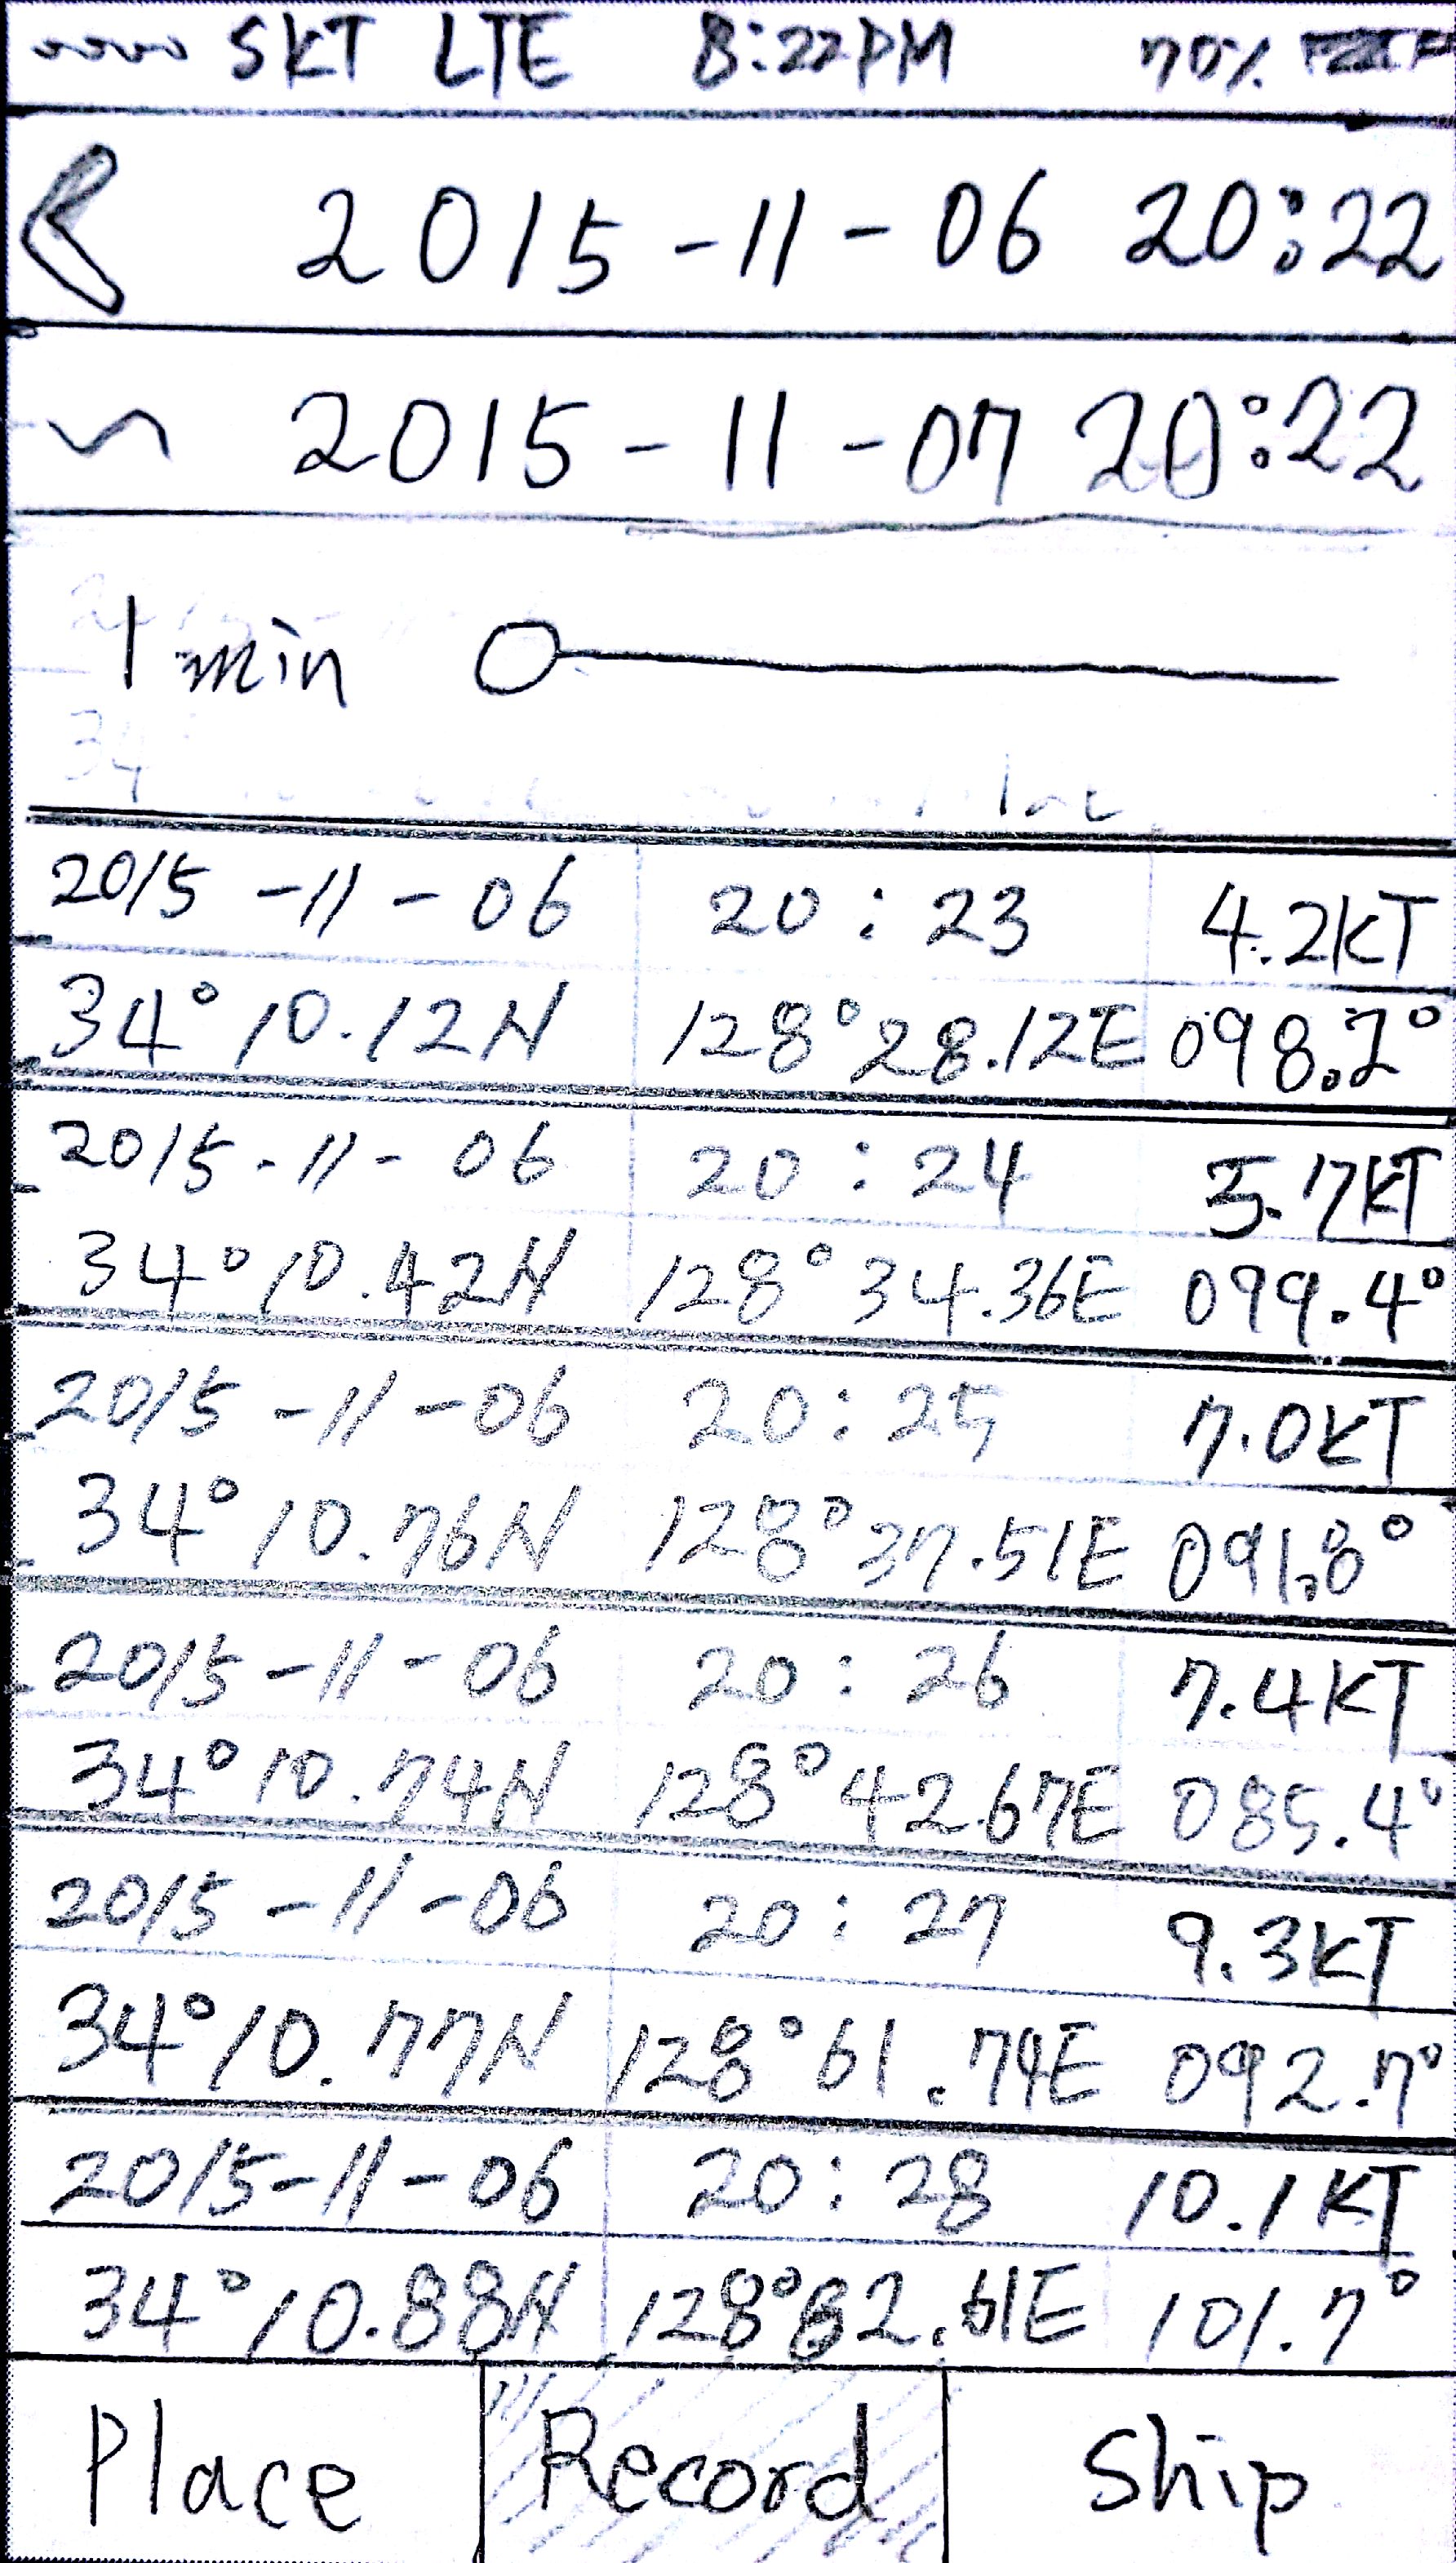 SKT LTE 8:22PM 70%
2015-11-06 20:22
~ 2015-11-07 20:22
1 min
2015-11-06 20:23 4.2KT
34°10.12N 128°28.12E 098.2°
2015-11-06 20:24 5.7KT
34°10.42N 128°34.36E 099.4°
2015-11-06 20:25 7.0KT
34°10.76N 128°37.51E 091.8°
2015-11-06 20:26 7.4KT
34°10.74N 128°42.67E 085.4°
2015-11-06 20:27 9.3KT
34°10.77N 128°61.74E 092.7°
2015-11-06 20:28 10.1KT
34°10.88N 101.7°
Place Record Ship